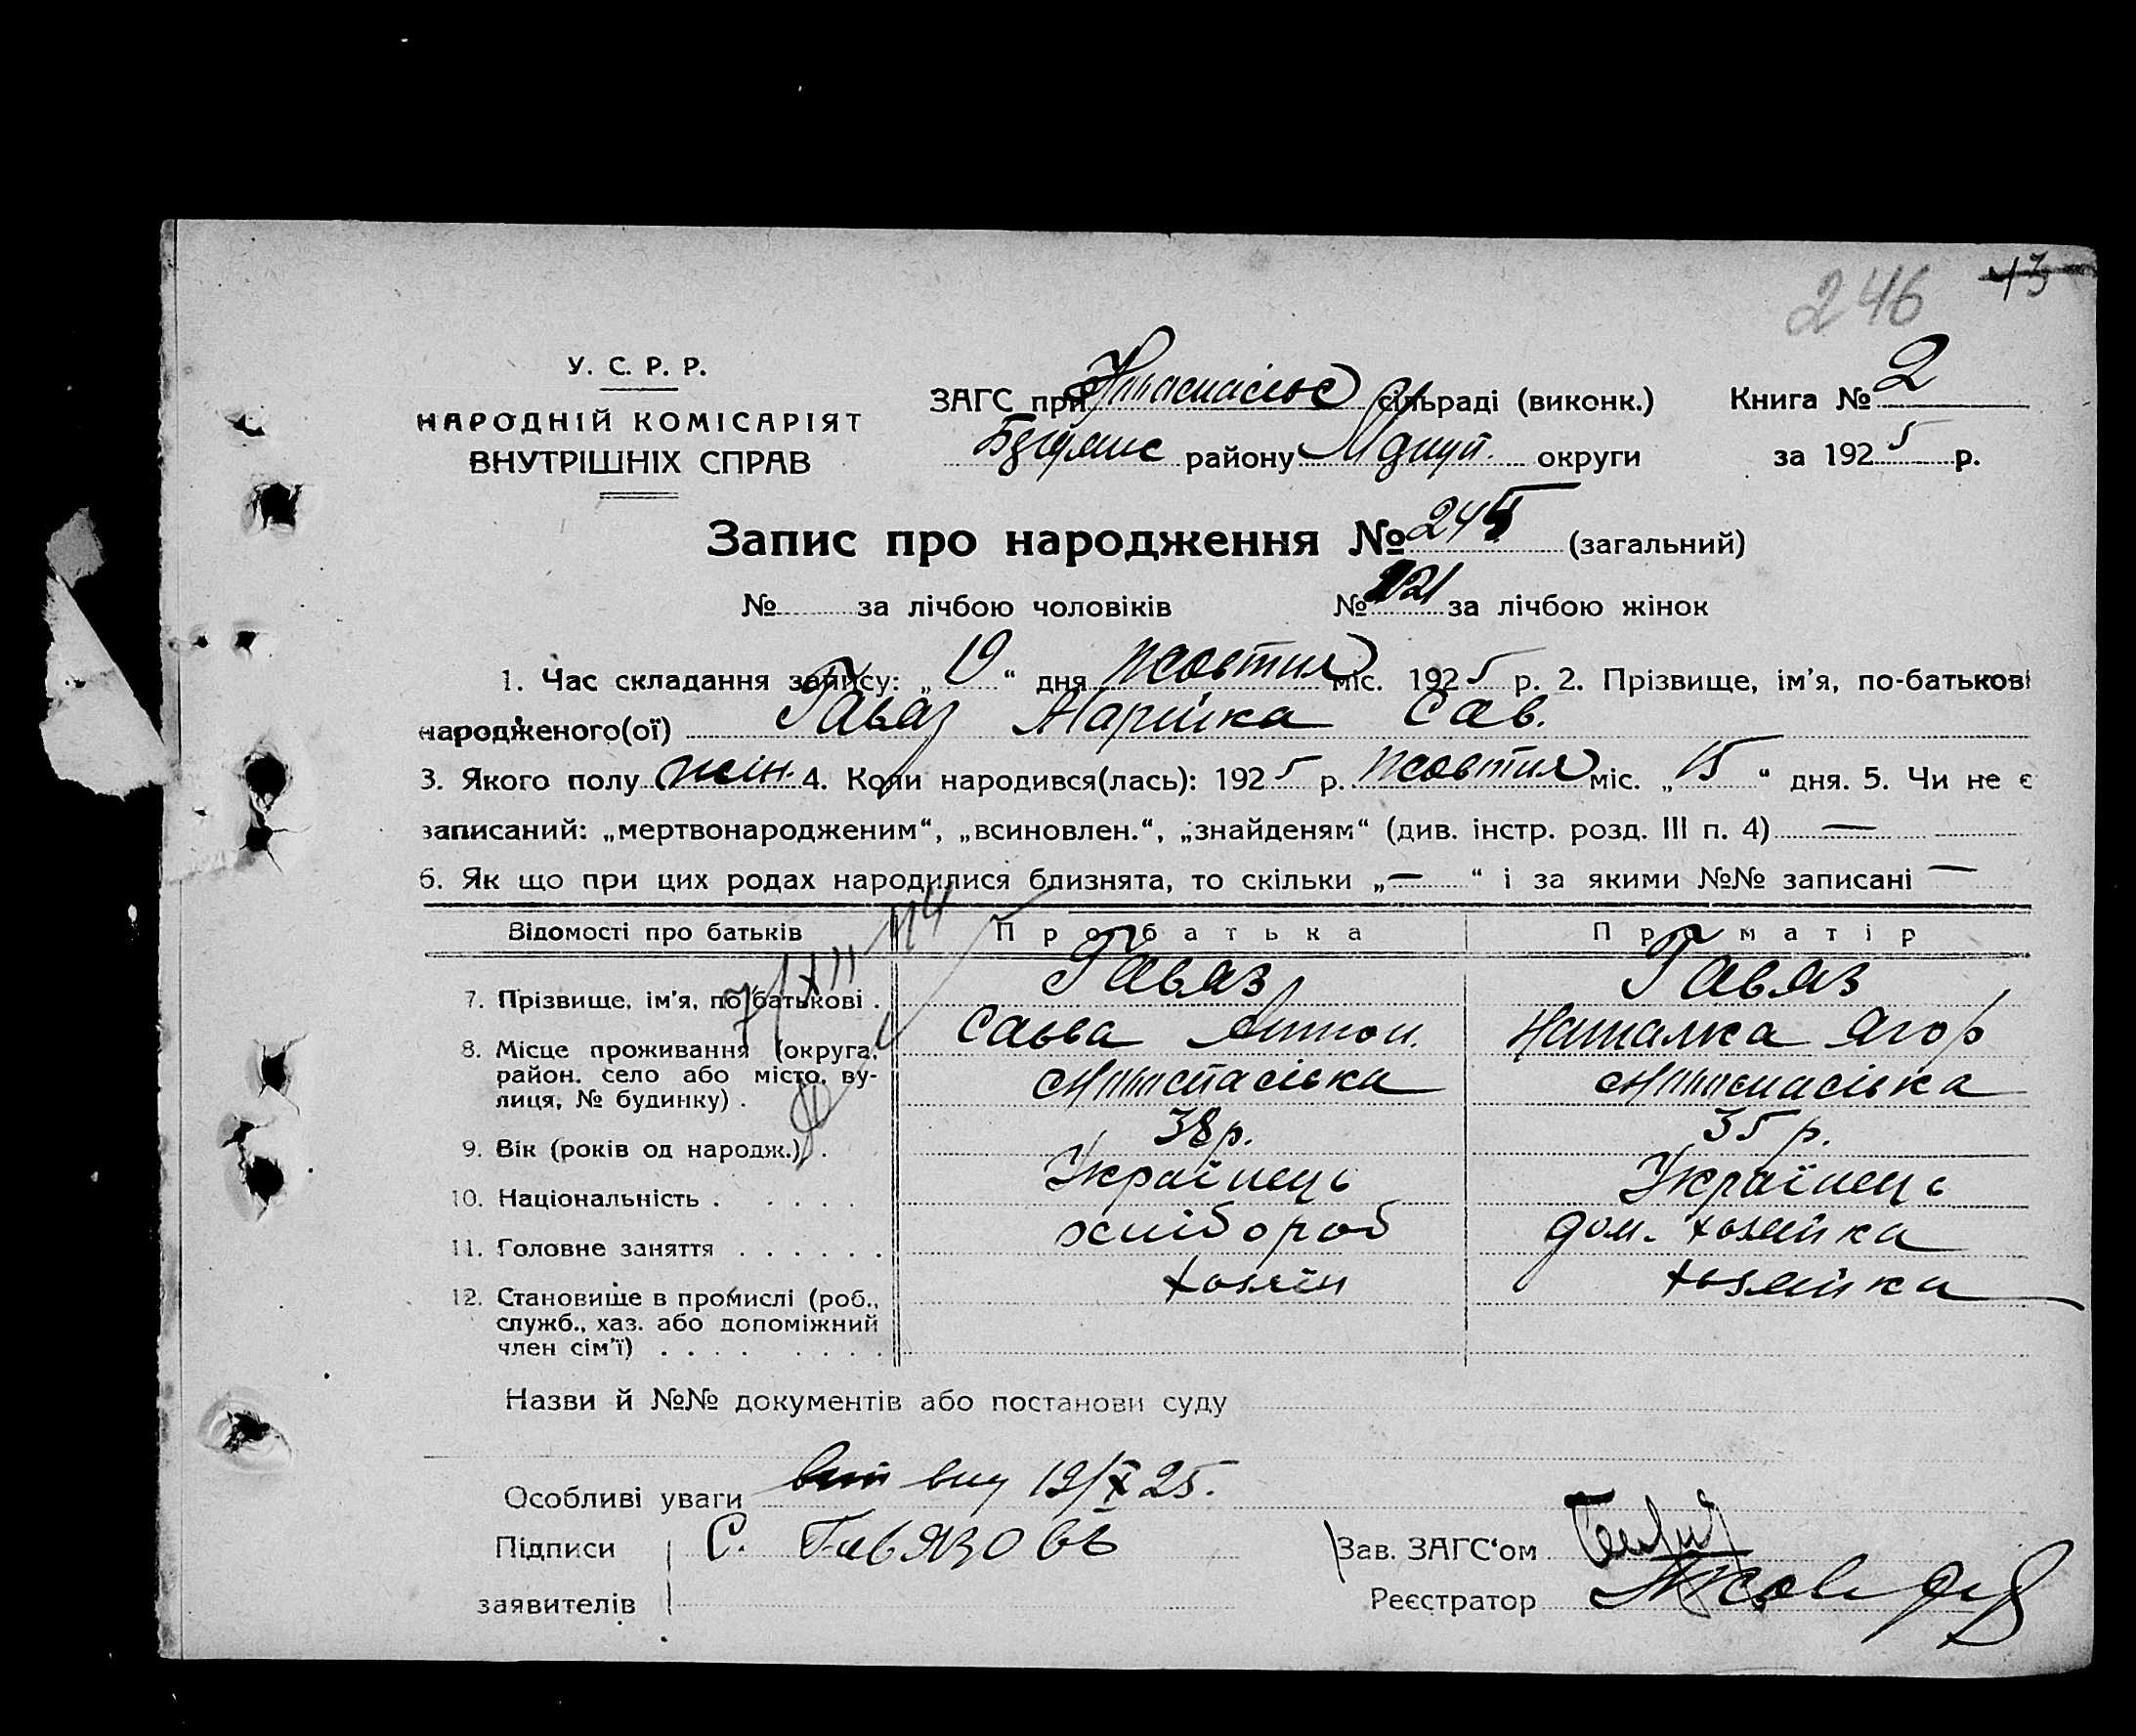 246 13
У. С. Р. Р.
НАРОДНІЙ КОМІСАРІЯТ
ВНУТРІШНІХ СПРАВ
ЗАГС при сільраді (виконк.) Книга № 2
району округи за 1925 р.
Запис про народження № 245 (загальний)
№ за лічбою чоловіків № 121 за лічбою жінок
1. Час складання запису: „19“ дня жовтня міс. 1925 р. 2. Прізвище, ім'я, по-батькові
народженого(ої) Гавяз Марійка Сав.
3. Якого полу жін. 4. Коли народився(лась): 1925 р. жовтня міс. „15“ дня. 5. Чи не є
записаний: „мертвонародженим“, „всиновлен.“, „знайденям“ (див. інстр. розд. III п. 4) —
6. Як що при цих родах народилися близнята, то скільки „—“ і за якими №№ записані —
Відомості про батьків Про батька Про матір
7. Прізвище, ім'я, по батькові . Гавяз Гавяз
Савва Антон. Наталка Ягор
8. Місце проживання (округа, район, село або місто, вулиця, № будинку) .
9. Вік (років од народж.) . 38 р. 35 р.
10. Національність . . . . . Українець Українець
11. Головне заняття . . . . . . хлібороб дом. хозяйка
12. Становище в промислі (роб., хозяїн хозяйка
служб., хаз. або допоміжний
член сім'ї) . . . . . . . .
Назви й №№ документів або постанови суду
Особливі уваги 19/X 25.
Підписи С. Гавязовъ Зав. ЗАГС'ом
заявителів Реєстратор